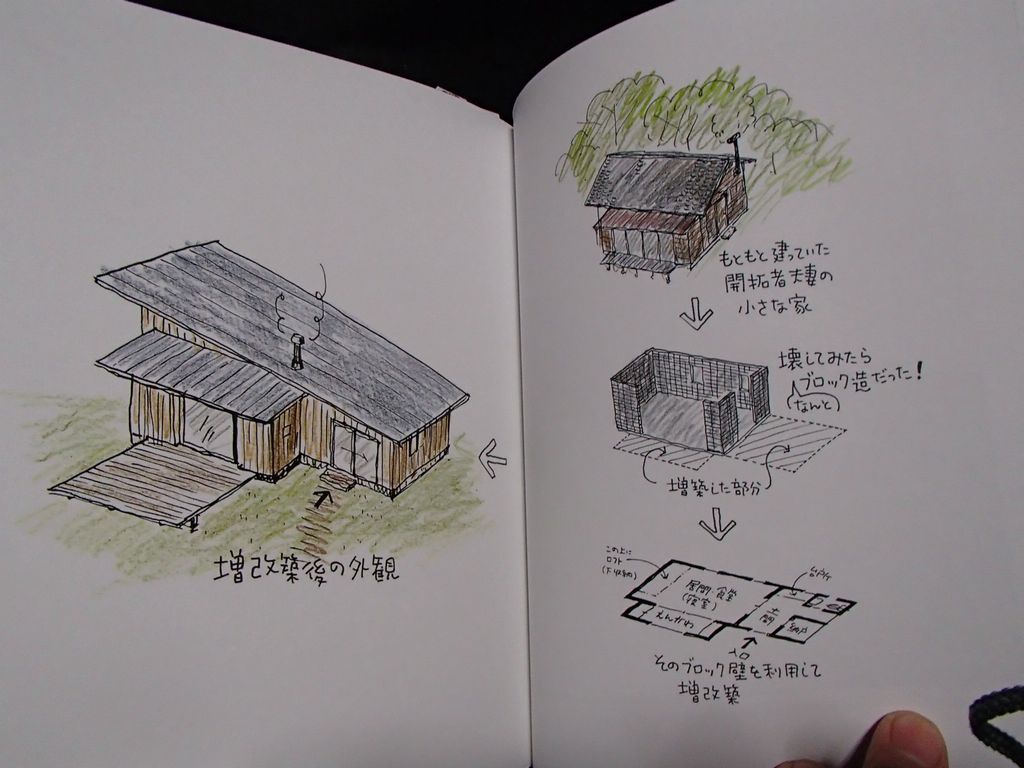 もともと建っていた
開拓者夫妻の
小さな家
壊してみたら
ブロック造だった!
なんと
増築した部分
この上に
ロフト
(下収納)
居間・食堂
(寝室)
台所
えんがわ
土間
納戸
入口
そのブロック壁を利用して
増改築
増改築後の外観